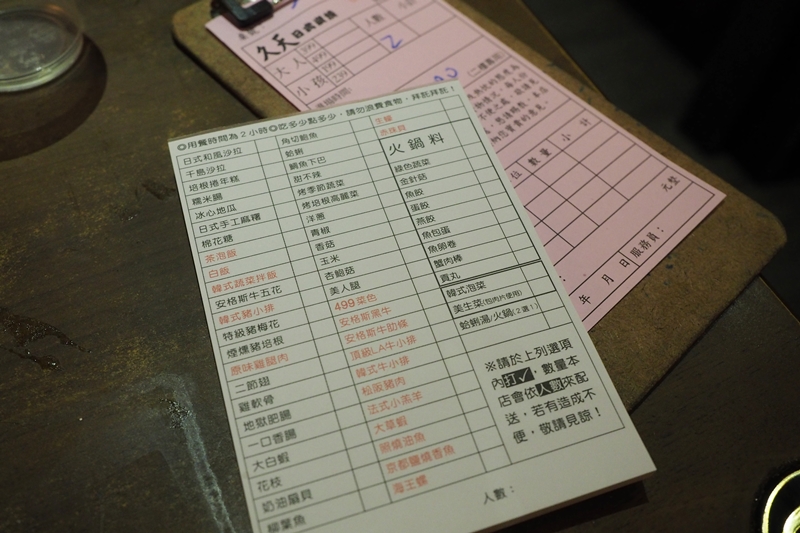 久天日式碳燒
人數
小計
大人
399
499
小孩
199
239
2
位
數量
小計
元整
年 月 日
服務員：
◎用餐時間為2小時◎吃多少點多少，請勿浪費食物，拜託拜託！
日式和風沙拉
千島沙拉
培根捲年糕
糯米腸
冰心地瓜
日式手工麻糬
棉花糖
茶泡飯
白飯
韓式蔬菜拌飯
安格斯牛五花
韓式豬小排
特級豬梅花
煙燻豬培根
原味雞腿肉
二節翅
雞軟骨
地獄肥腸
一口香腸
大白蝦
花枝
奶油扇貝
柳葉魚
角切鮑魚
蛤蜊
鯛魚下巴
甜不辣
烤季節蔬菜
烤培根高麗菜
洋蔥
青椒
香菇
玉米
杏鮑菇
美人腿
499菜色
安格斯黑牛
安格斯牛肋條
頂級LA牛小排
韓式牛小排
松阪豬肉
法式小羔羊
大草蝦
照燒油魚
京都鹽燒香魚
海王螺
生蠔
赤珠貝
火鍋料
綠色蔬菜
金針菇
魚餃
蛋餃
燕餃
魚包蛋
魚卵卷
蟹肉棒
貢丸
韓式泡菜
美生菜(包肉片使用)
蛤蜊湯/火鍋(2選1)
※請於上列選項
內打✓，數量本
店會依人數來配
送，若有造成不
便，敬請見諒！
人數：